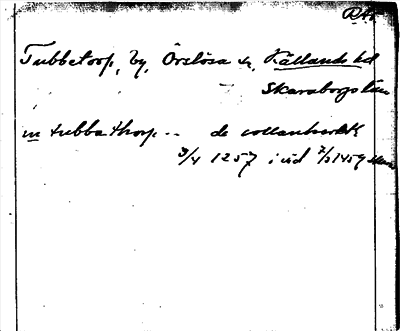 Tubbetorp, by, Örslösa sn, Kållands hd
Skaraborgs län
in tubbathorp -- de
3/4 1257 i vid 7/3 1459